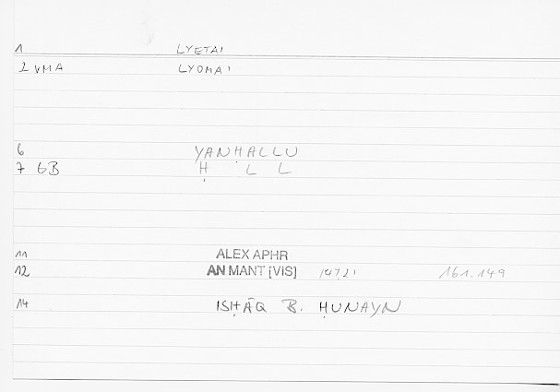 1 LYETAI
2 VMA LYOMAI
6 YANḤALLU
7 GB Ḥ L L
11 ALEX APHR
12 AN MANT [VIS] 161.149
14 ISḤĀQ B. ḤUNAYN